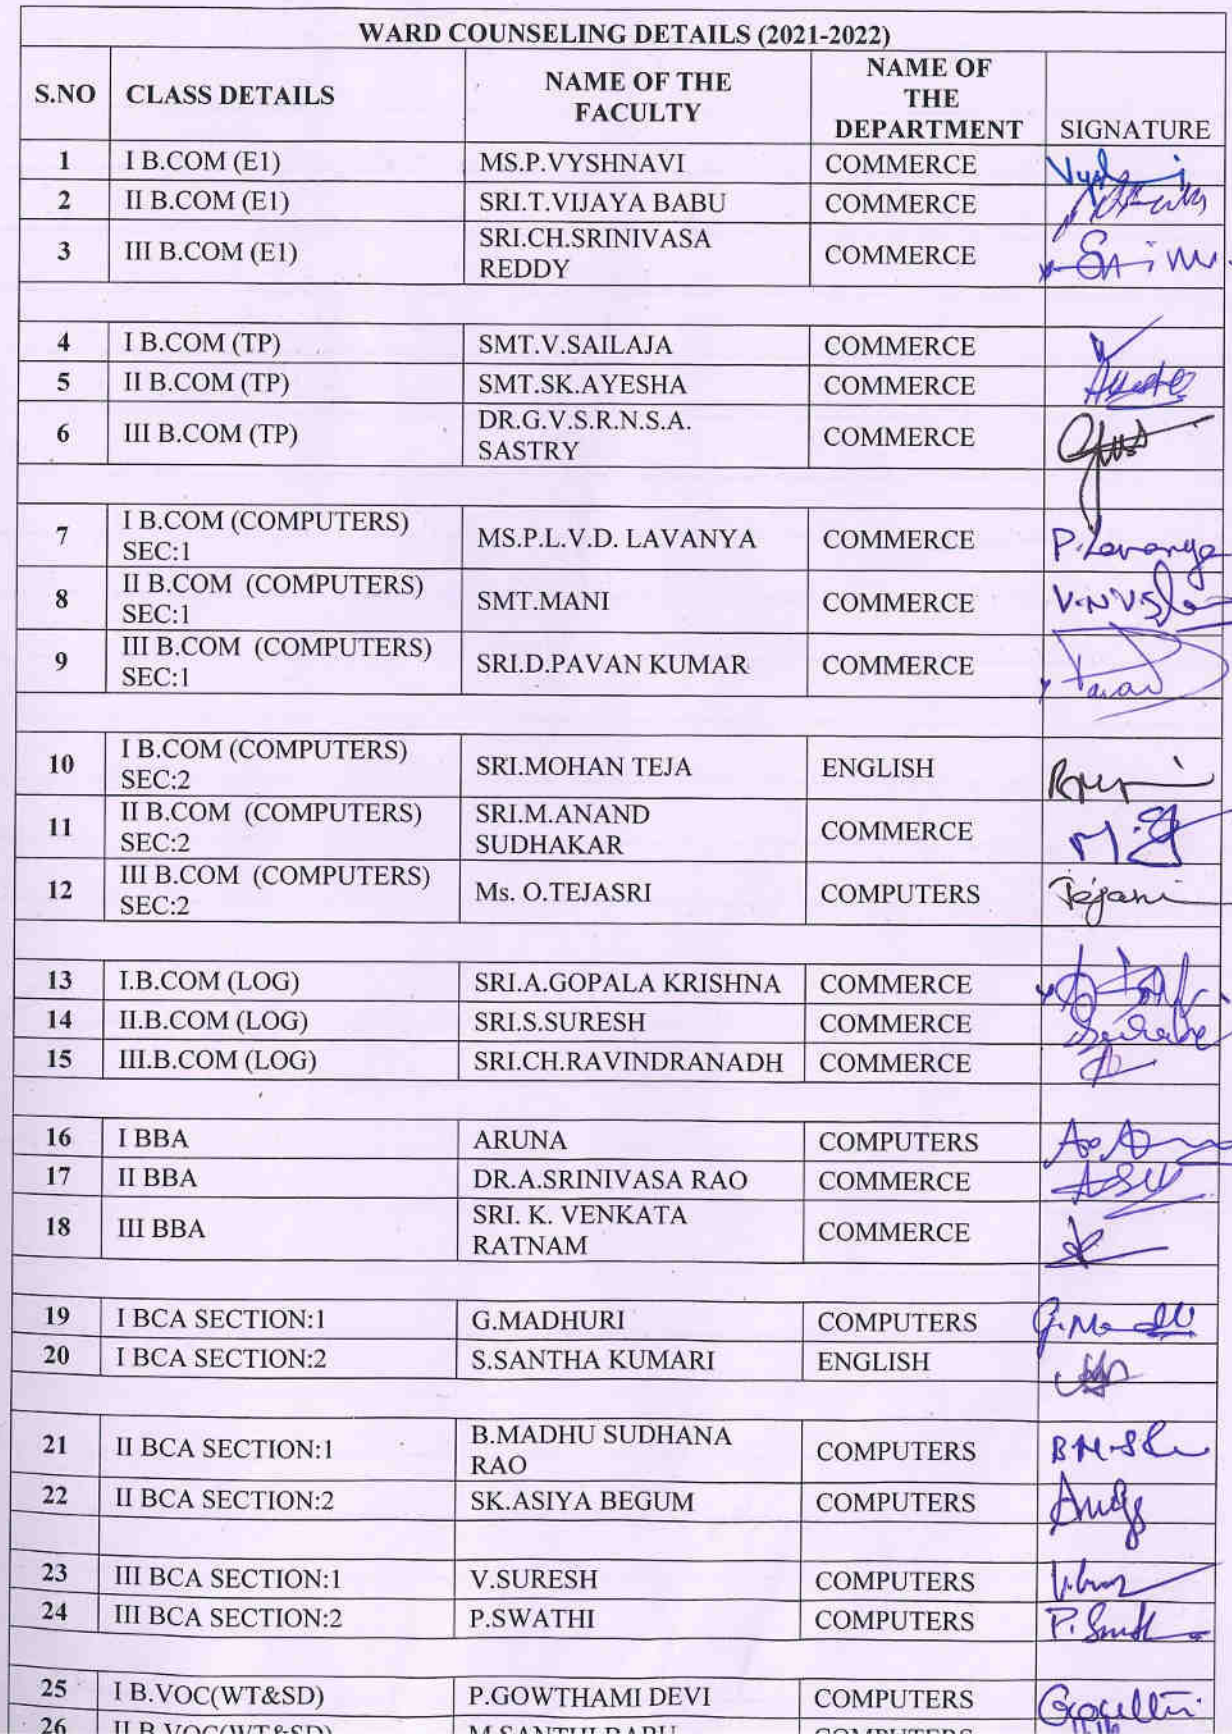 WARD COUNSELING DETAILS (2021-2022)
S.NO CLASS DETAILS NAME OF THE FACULTY NAME OF THE DEPARTMENT SIGNATURE
1 I B.COM (E1) MS.P.VYSHNAVI COMMERCE
2 II B.COM (E1) SRI.T.VIJAYA BABU COMMERCE
3 III B.COM (E1) SRI.CH.SRINIVASA REDDY COMMERCE
4 I B.COM (TP) SMT.V.SAILAJA COMMERCE
5 II B.COM (TP) SMT.SK.AYESHA COMMERCE
6 III B.COM (TP) DR.G.V.S.R.N.S.A. SASTRY COMMERCE
7 I B.COM (COMPUTERS) SEC:1 MS.P.L.V.D. LAVANYA COMMERCE P.Lavanya
8 II B.COM (COMPUTERS) SEC:1 SMT.MANI COMMERCE
9 III B.COM (COMPUTERS) SEC:1 SRI.D.PAVAN KUMAR COMMERCE
10 I B.COM (COMPUTERS) SEC:2 SRI.MOHAN TEJA ENGLISH
11 II B.COM (COMPUTERS) SEC:2 SRI.M.ANAND SUDHAKAR COMMERCE
12 III B.COM (COMPUTERS) SEC:2 Ms. O.TEJASRI COMPUTERS
13 I.B.COM (LOG) SRI.A.GOPALA KRISHNA COMMERCE
14 II.B.COM (LOG) SRI.S.SURESH COMMERCE
15 III.B.COM (LOG) SRI.CH.RAVINDRANADH COMMERCE
16 I BBA ARUNA COMPUTERS
17 II BBA DR.A.SRINIVASA RAO COMMERCE
18 III BBA SRI. K. VENKATA RATNAM COMMERCE
19 I BCA SECTION:1 G.MADHURI COMPUTERS
20 I BCA SECTION:2 S.SANTHA KUMARI ENGLISH
21 II BCA SECTION:1 B.MADHU SUDHANA RAO COMPUTERS
22 II BCA SECTION:2 SK.ASIYA BEGUM COMPUTERS
23 III BCA SECTION:1 V.SURESH COMPUTERS
24 III BCA SECTION:2 P.SWATHI COMPUTERS
25 I B.VOC(WT&SD) P.GOWTHAMI DEVI COMPUTERS
26 II B.VOC(WT&SD) M.SANTHI BABU COMPUTERS